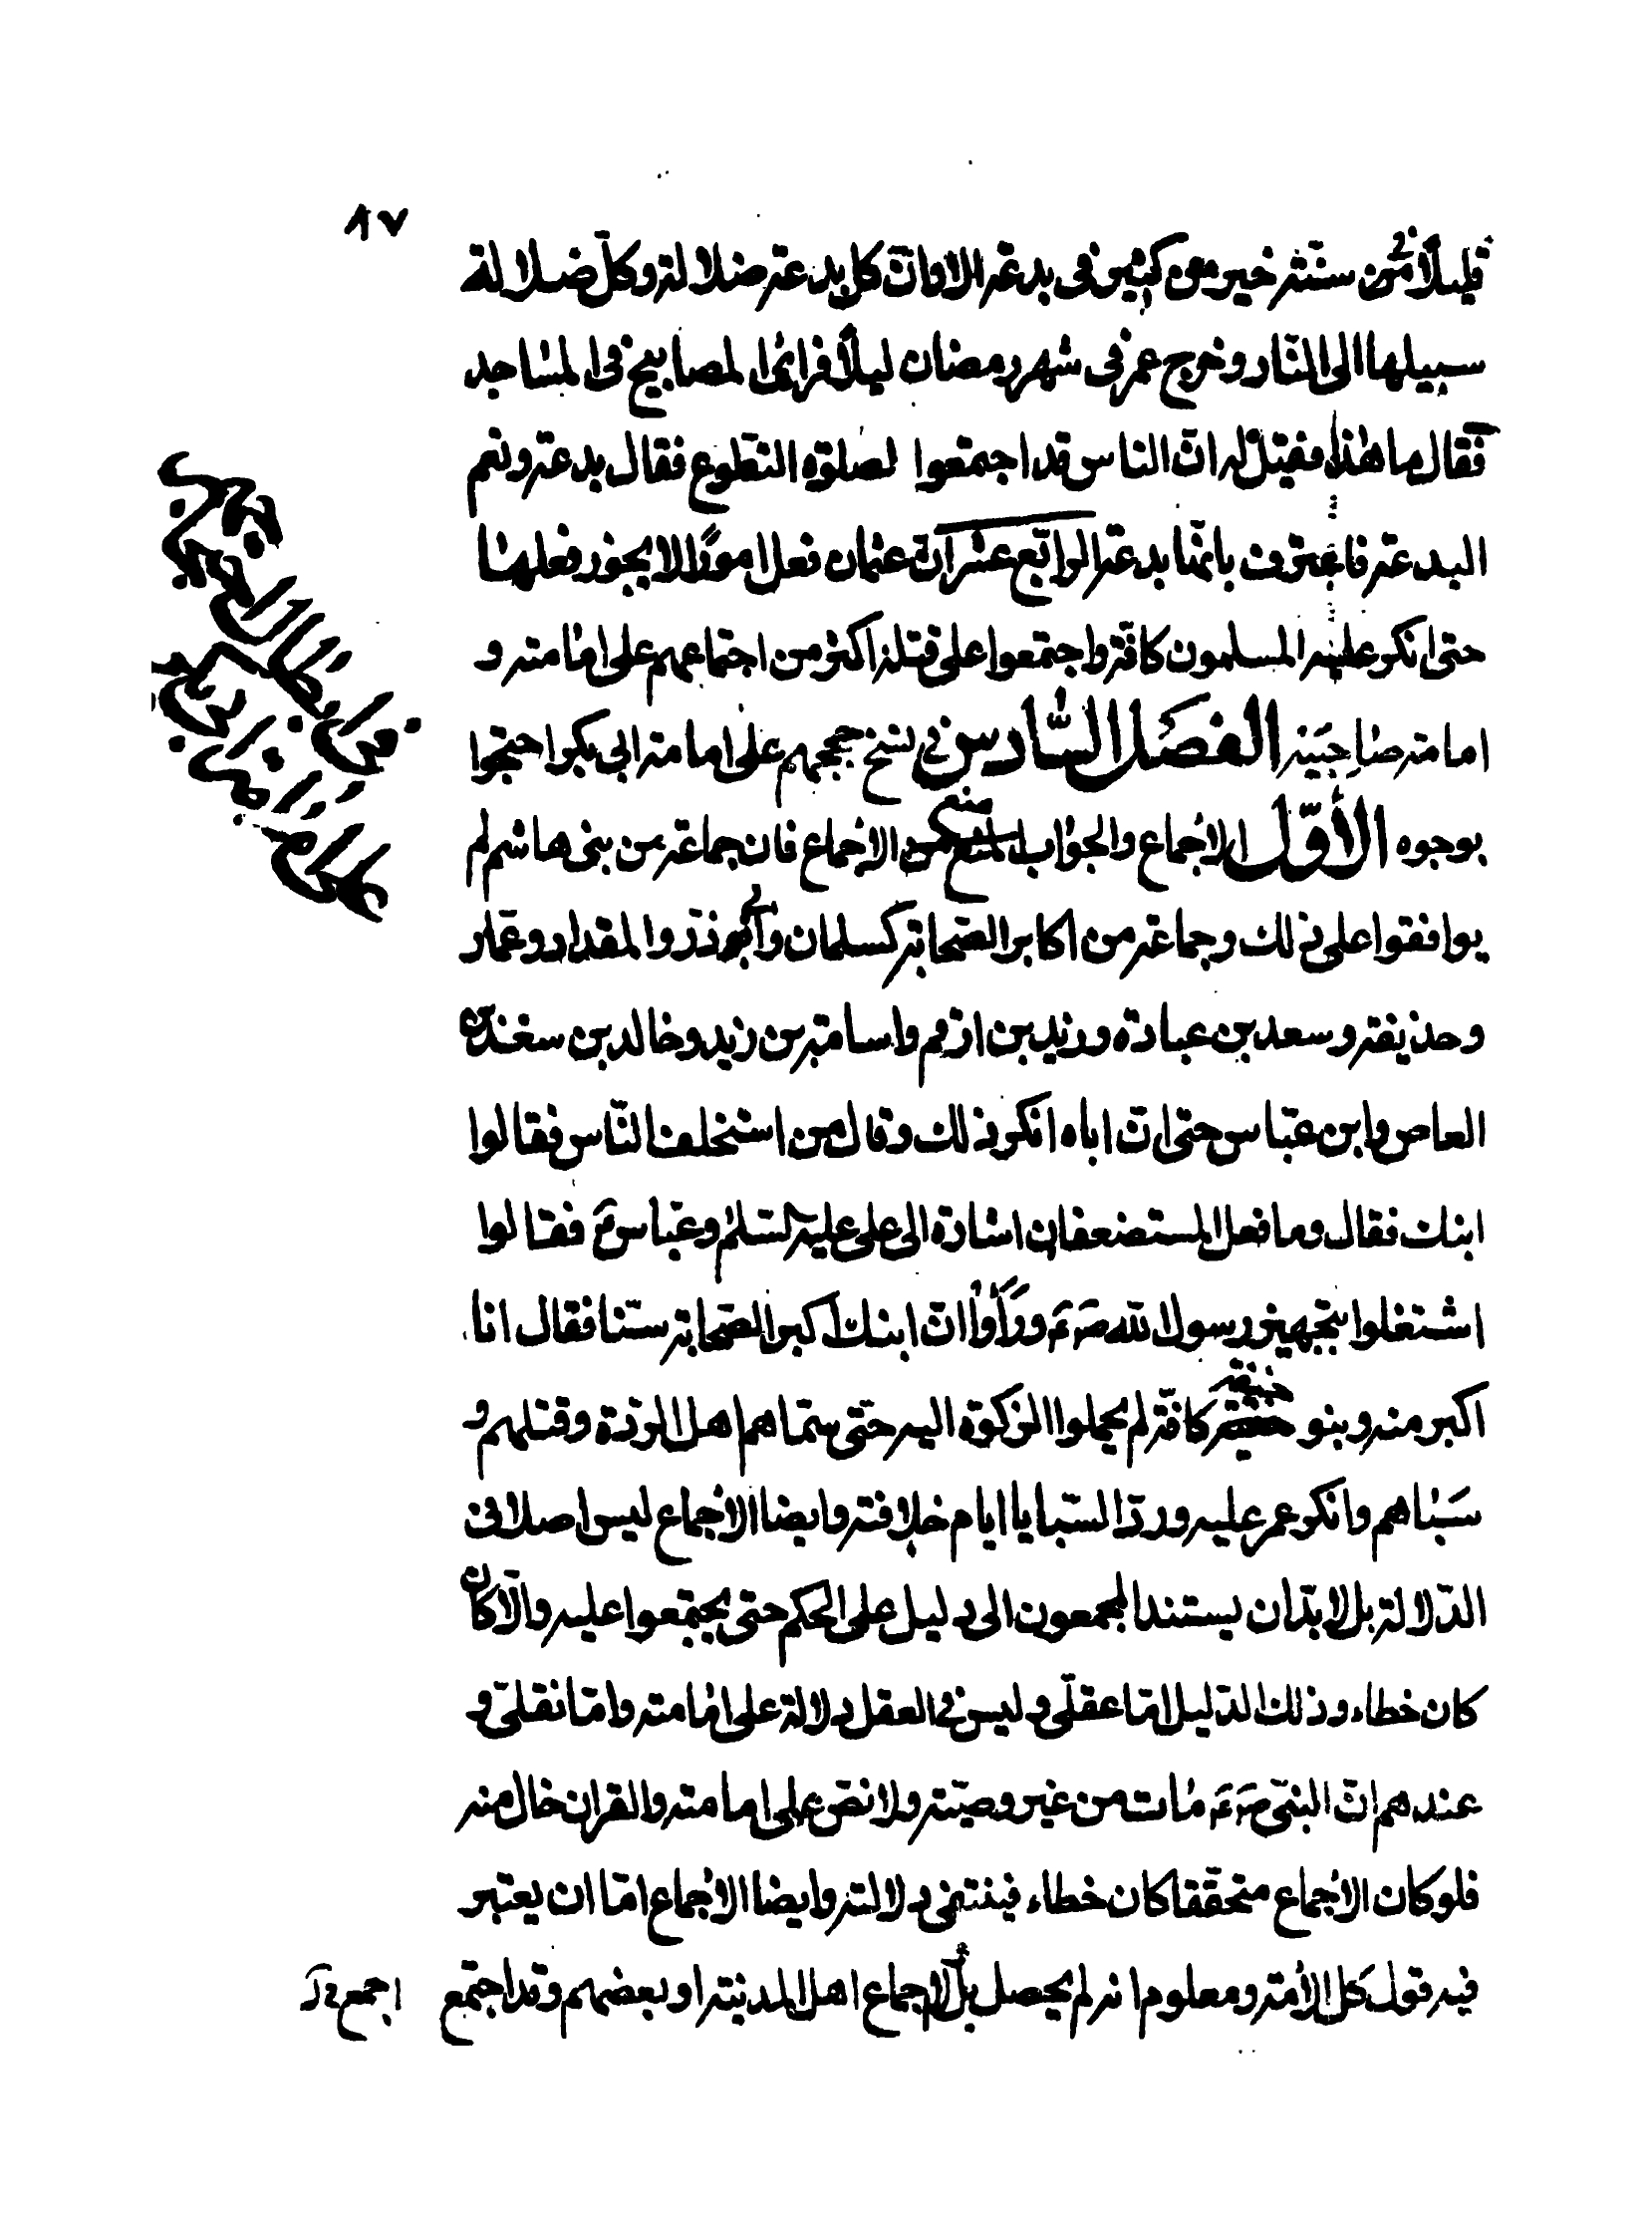 ٨٧
قليلا في سنة خير من كثير في بدعة الا وان كل بدعة ضلالة وكل ضلالة
سبيلها الى النار وخرج عمر في شهر رمضان ليلاً فرأى المصابيح في المساجد
فقال ما هذا فقيل له ان الناس قد اجتمعوا لصلوة التطوع فقال بدعة ونعم
البدعة فاعترف بانها بدعة الرابع عشر ان عثمان فعل امورًا لا يجوز فعلها
حتى انكر عليه المسلمون كافة واجتمعوا على قتله اكثر من اجتماعهم على امامته و
امامة صاحبيه الفصل السّادس في نسخ حججهم على امامة ابي بكر احتجوا
بوجوه الأوّل الاجماع والجواب منع الاجماع فان جماعة من بني هاشم لم
يوافقوا على ذلك وجماعة من اكابر الصحابة كسلمان وأبي ذر والمقداد وعمّار
وحذيفة وسعد بن عبادة وزيد بن ارقم واسامة بن زيد وخالد بن سعيد بن
العاص وابن عبّاس حتى ان اباه انكر ذلك وقال من استخلف النّاس فقالوا
ابنك فقال وما فعل المستضعفان اشارة الى علي عليه السّلم وعبّاس فقالوا
اشتغلوا بتجهيز رسول الله ص ع ورأوا انّ ابنك اكبر الصّحابة سنّا فقال انا
اكبر منه وبنو حنيفة كافّة لم يحملوا الزكوة اليه حتّى سمّاهم اهل الردّة وقتلهم و
سَبَاهم وانكر عمر عليه وردّ السّبايا ايام خلافته وايضا الاجماع ليس اصلا في
الدّلالة بل لا بدّ ان يستند المجمعون الى دليل على الحكم حتى يجتمعوا عليه والّا كان
كان خطاء وذلك الدّليل امّا عقلّي وليس في العقل دلالة على امامته وامّا نقلّي و
عندهم انّ النبّي ص ع مات من غير وصيّة ولا نصّ على امامته والقران خال منه
فلو كان الاجماع متحققا كان خطاء فينتفي دلالته وايضا الاجماع امّا ان يعتبر
فيه قول كل الأمّة ومعلوم انه لم يحصل بل لا اجماع اهل المدينة او بعضهم وقد اجتمع
اجمع